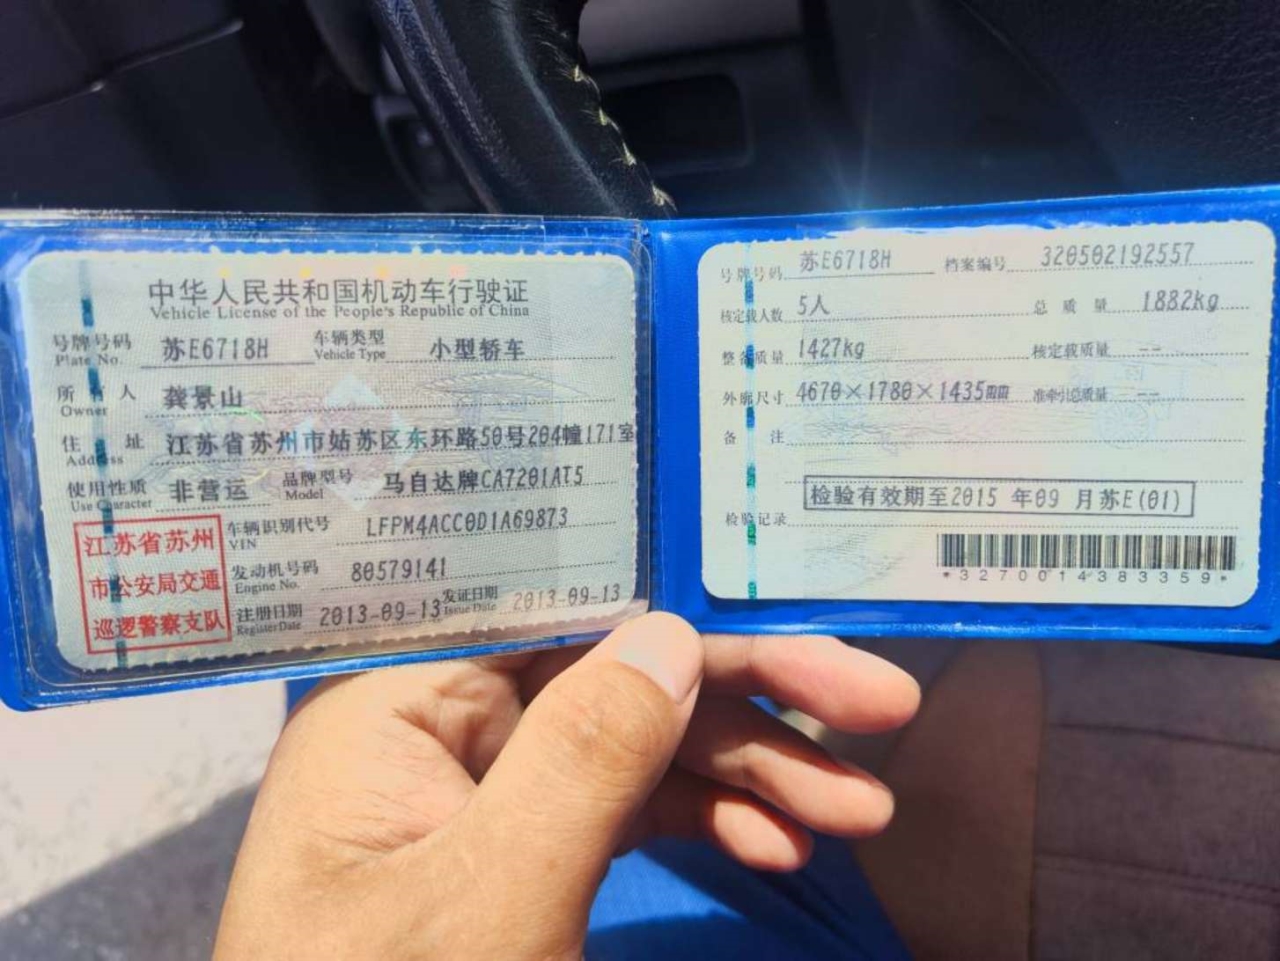 中华人民共和国机动车行驶证
Vehicle License of the People's Republic of China
号牌号码 苏E6718H 车辆类型 小型轿车
Plate No. Vehicle Type
所有人 龚景山
Owner
住址 江苏省苏州市姑苏区东环路50号204幢171室
Address
使用性质 非营运 品牌型号 马自达牌CA7201AT5
Use Character Model
江苏省苏州
市公安局交通
巡逻警察支队
车辆识别代号 LFPM4ACC0D1A69873
VIN
发动机号码 80579141
Engine No.
注册日期 2013-09-13 发证日期 2013-09-13
Register Date Issue Date
号牌号码 苏E6718H 档案编号 320502192557
核定载人数 5人 总质量 1882kg
整备质量 1427kg 核定载质量 --
外廓尺寸 4670×1780×1435mm 准牵引总质量 --
备注
检验有效期至2015年09月苏E(01)
检验记录
*3270014383359*